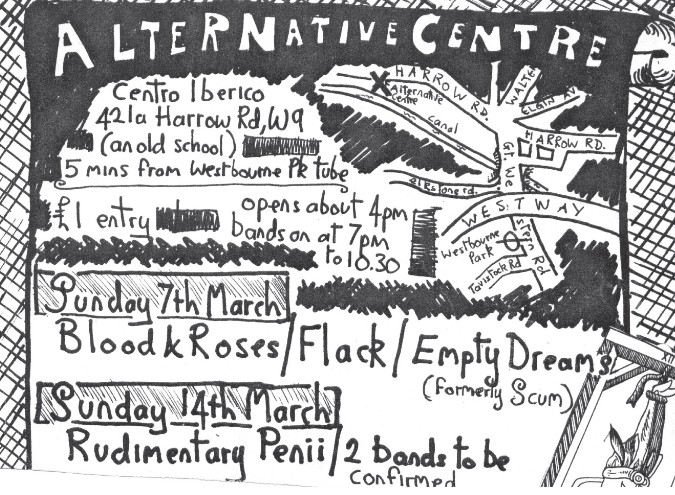 ALTERNATIVE CENTRE
Centro Iberico
421a Harrow Rd, W9
(an old school)
5 mins from Westbourne Pk tube
£1 entry
opens about 4pm
bands on at 7pm
to 10.30
HARROW RD.
Alternative
Centre
canal
WALTE
ELGIN AV
HARROW RD.
Gt. We
elkstone rd.
WESTWAY
stern Rd
Westbourne
Park
Tavistock Rd
Sunday 7th March
Blood & Roses/Flack/Empty Dreams
(formerly Scum)
[Sunday 14th March]
Rudimentary Penii/2 bands to be
confirmed